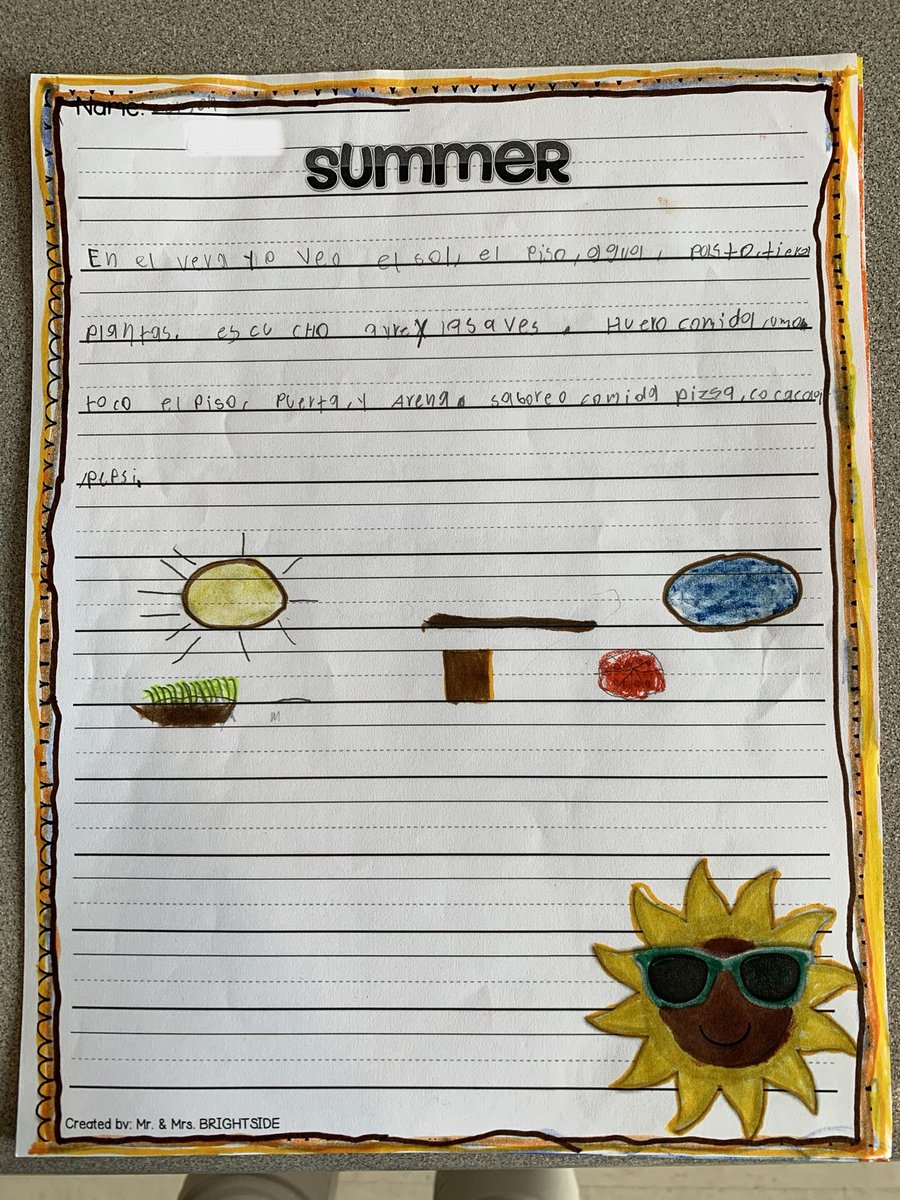 Name:
SUMMER
En el vera yo veo el sol, el piso, agua, pasto, tierra
plantas. escucho aire y las aves. Huelo comida, umo.
toco el piso, puerta, y Arena. saboreo comida pizza, cocacola
,pepsi.
Created by: Mr. & Mrs. BRIGHTSIDE